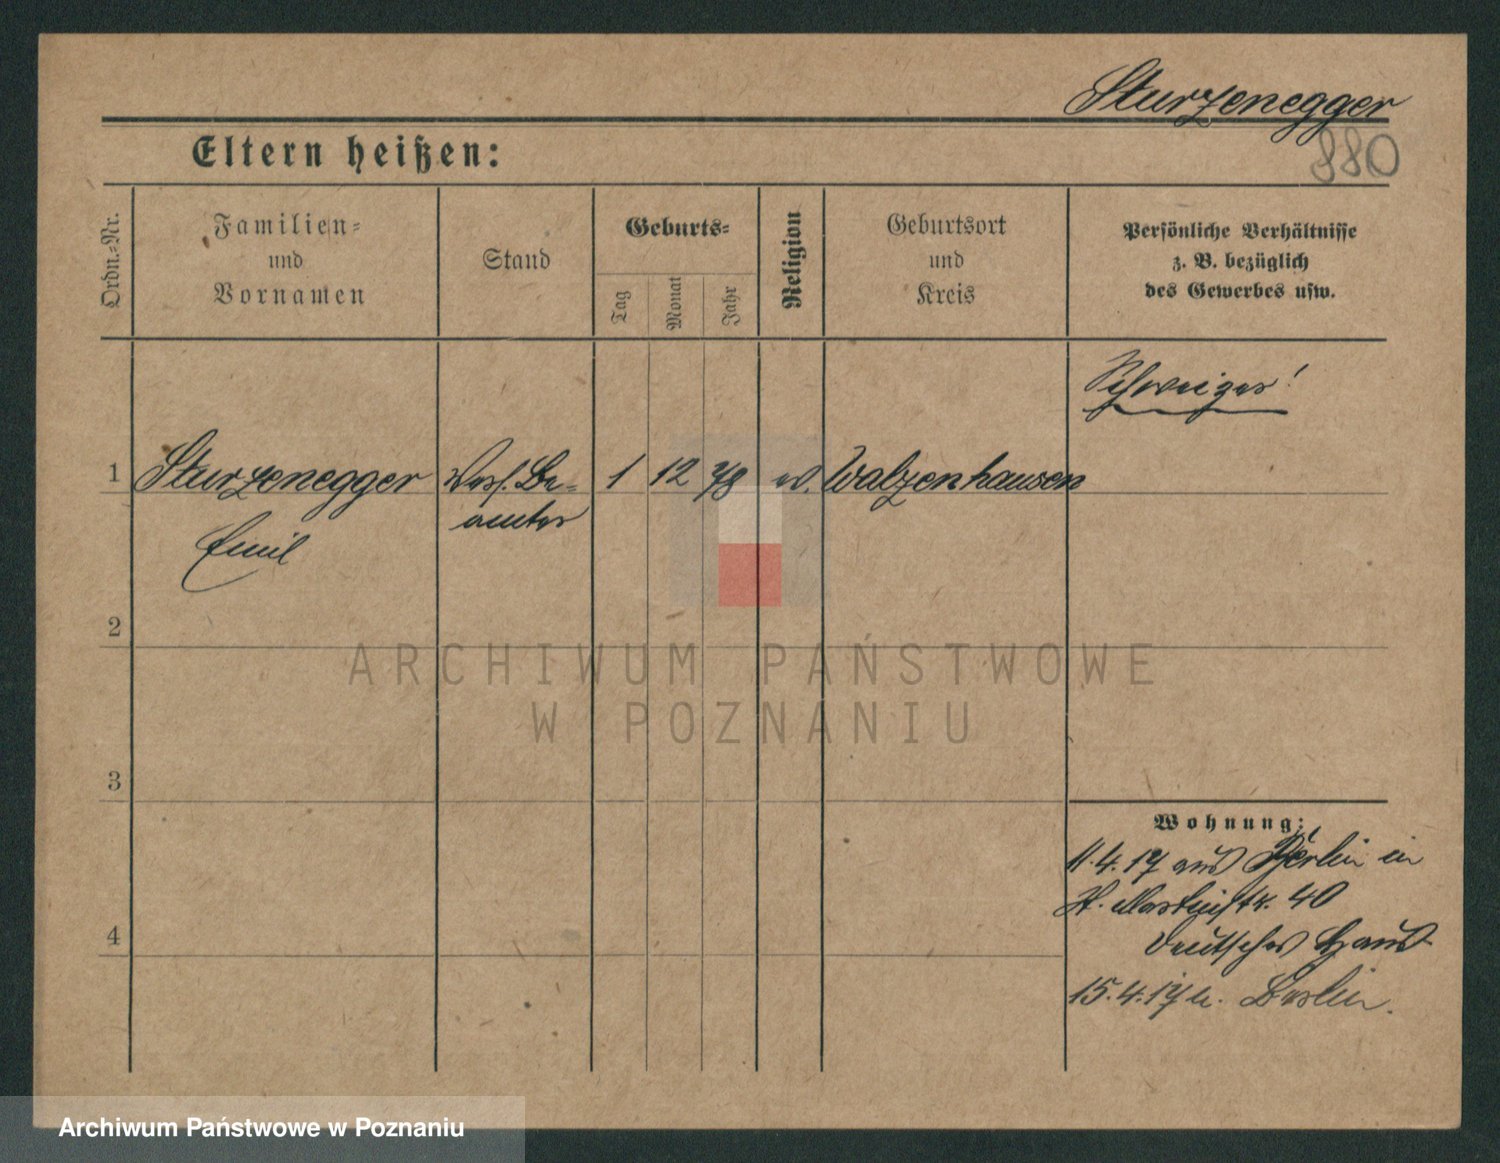 Sturzenegger
880
Eltern heißen:
Ordn.-Nr.
Familien-
und
Vornamen
Stand
Geburts-
Tag
Monat
Jahr
Religion
Geburtsort
und
Kreis
Persönliche Verhältnisse
z. B. bezüglich
des Gewerbes usw.
Schweizer!
1 Sturzenegger Vers. Be- 1 12 78 ev. Walzenhausen
amter
Emil
2
3
4
Wohnung:
11.4.17 aus Berlin in
H. Martinstr. 40
Deutsches Haus
15.4.17 n. Berlin.
ARCHIWUM PAŃSTWOWE
W POZNANIU
Archiwum Państwowe w Poznaniu